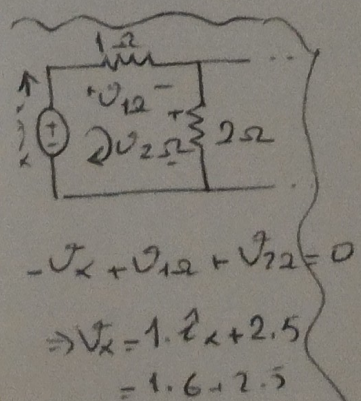 1Ω
+ v₁Ω −
iₓ + v₂Ω + 2Ω
-Vₓ + v₁Ω + v₂Ω = 0
⇒ Vₓ = 1 . iₓ + 2.5
= 1.6 + 2.5